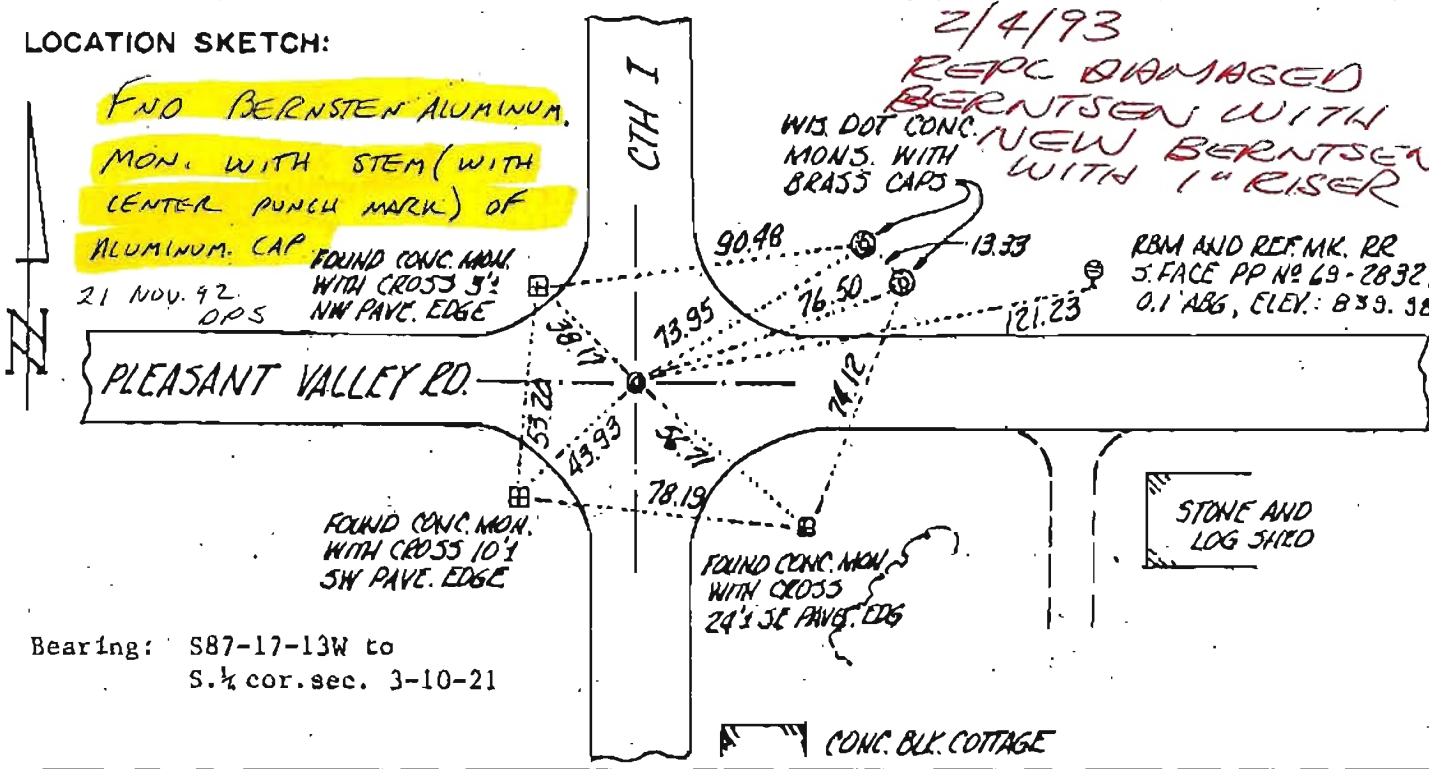 LOCATION SKETCH:
FND BERNSTEN ALUMINUM.
MON. WITH STEM (WITH
CENTER PUNCH MARK) OF
ALUMINUM. CAP
21 NOV. 92.
DPS
2/4/93
REPC DAMAGED
BERNTSEN WITH
NEW BERNTSEN
WITH 1" RISER
CTH I
WIS. DOT CONC.
MONS. WITH
BRASS CAPS
FOUND CONC. MON.
WITH CROSS 5'±
NW PAVE. EDGE
90.48
13.33
RBM AND REF. MK. RR
S. FACE PP Nº 69-2832
0.1 ABG, ELEV.: 839.98
N
38.17
73.95
76.50
121.23
PLEASANT VALLEY RD.
53.20
43.93
56.71
74.12
78.19
FOUND CONC. MON.
WITH CROSS 10'±
SW PAVE. EDGE
FOUND CONC. MON
WITH CROSS
24'± SE PAVE. EDG
STONE AND
LOG SHED
Bearing: S87-17-13W to
S.¼ cor.sec. 3-10-21
CONC. BLK. COTTAGE